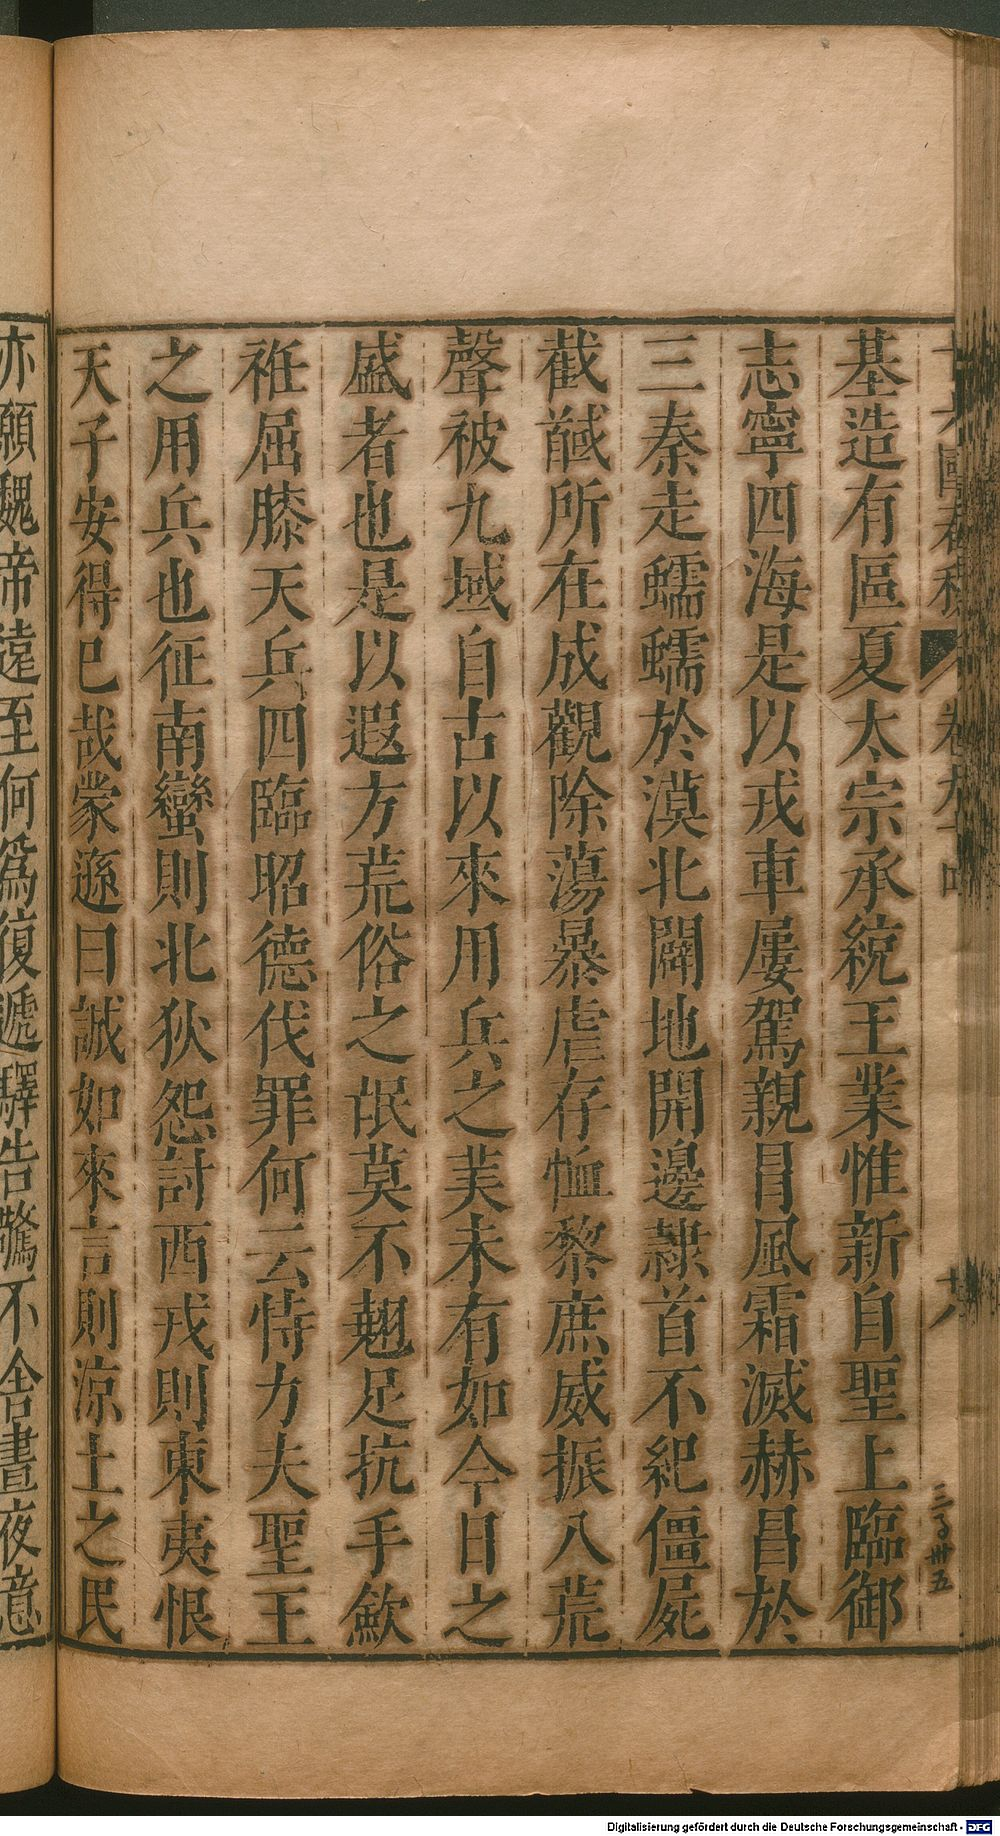 十六國春秋 卷九十四 十八
三百卅五
基造有區夏太宗承統王業惟新自聖上臨御
志寧四海是以戎車屢駕親冐風霜滅赫昌於
三秦走蠕蠕於漠北闢地開邊隷首不紀僵屍
截馘所在成觀除蕩暴虐存恤黎庶威振八荒
聲被九域自古以來用兵之美未有如今日之
盛者也是以遐方荒俗之氓莫不翹足抗手歛
袵屈膝天兵四臨昭德伐罪何云恃力夫聖王
之用兵也征南蠻則北狄怨討西戎則東夷恨
天子安得已哉蒙遜曰誠如來言則涼土之民
亦願魏帝遠至何爲復遞驛告驚不舍晝夜意
Digitalisierung gefördert durch die Deutsche Forschungsgemeinschaft - DFG